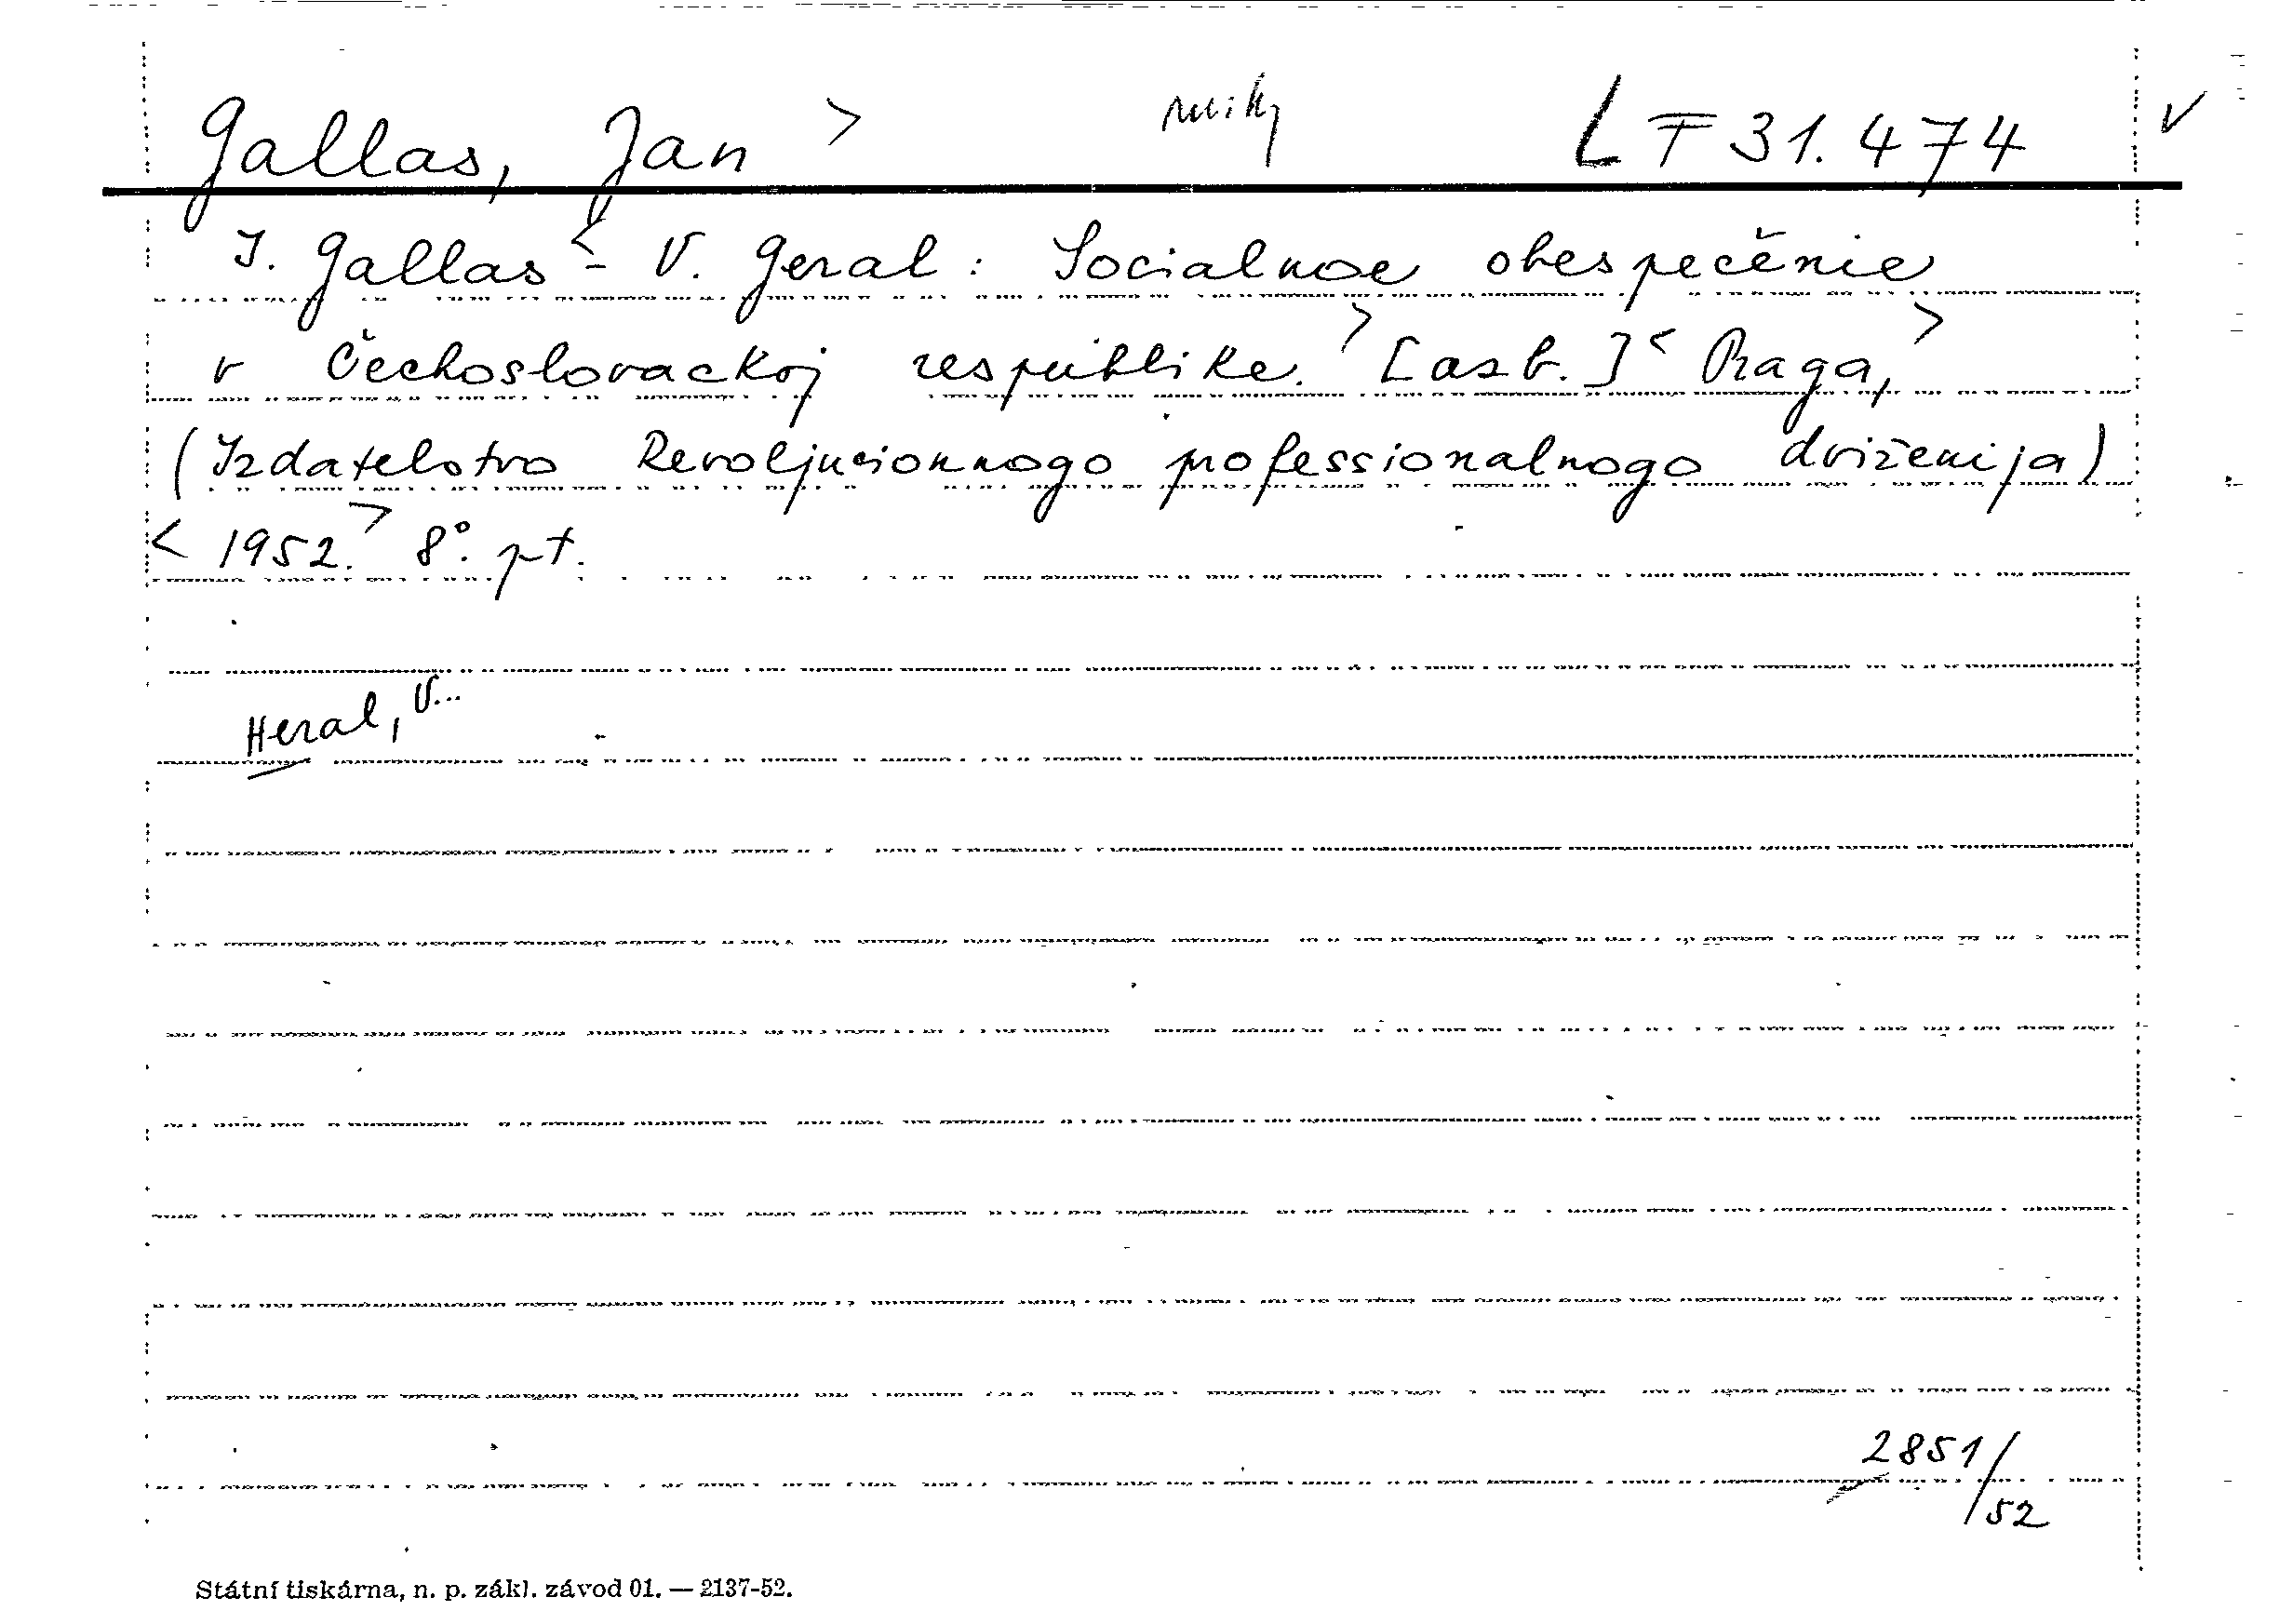 Gallas, Jan > LF 31.474 v
J. Gallas < - V. Geral : Socialnoe obespečěnie
v Čechoslovackoj respublike. > [azb.] < Praga, >
(Izdatelstvo Revoljucionnogo professionalnogo dviženija)
< 1952. > 8°. pt.
Heral, V...
2851/52
Státní tiskárna, n. p. zákl. závod 01. — 2137-52.